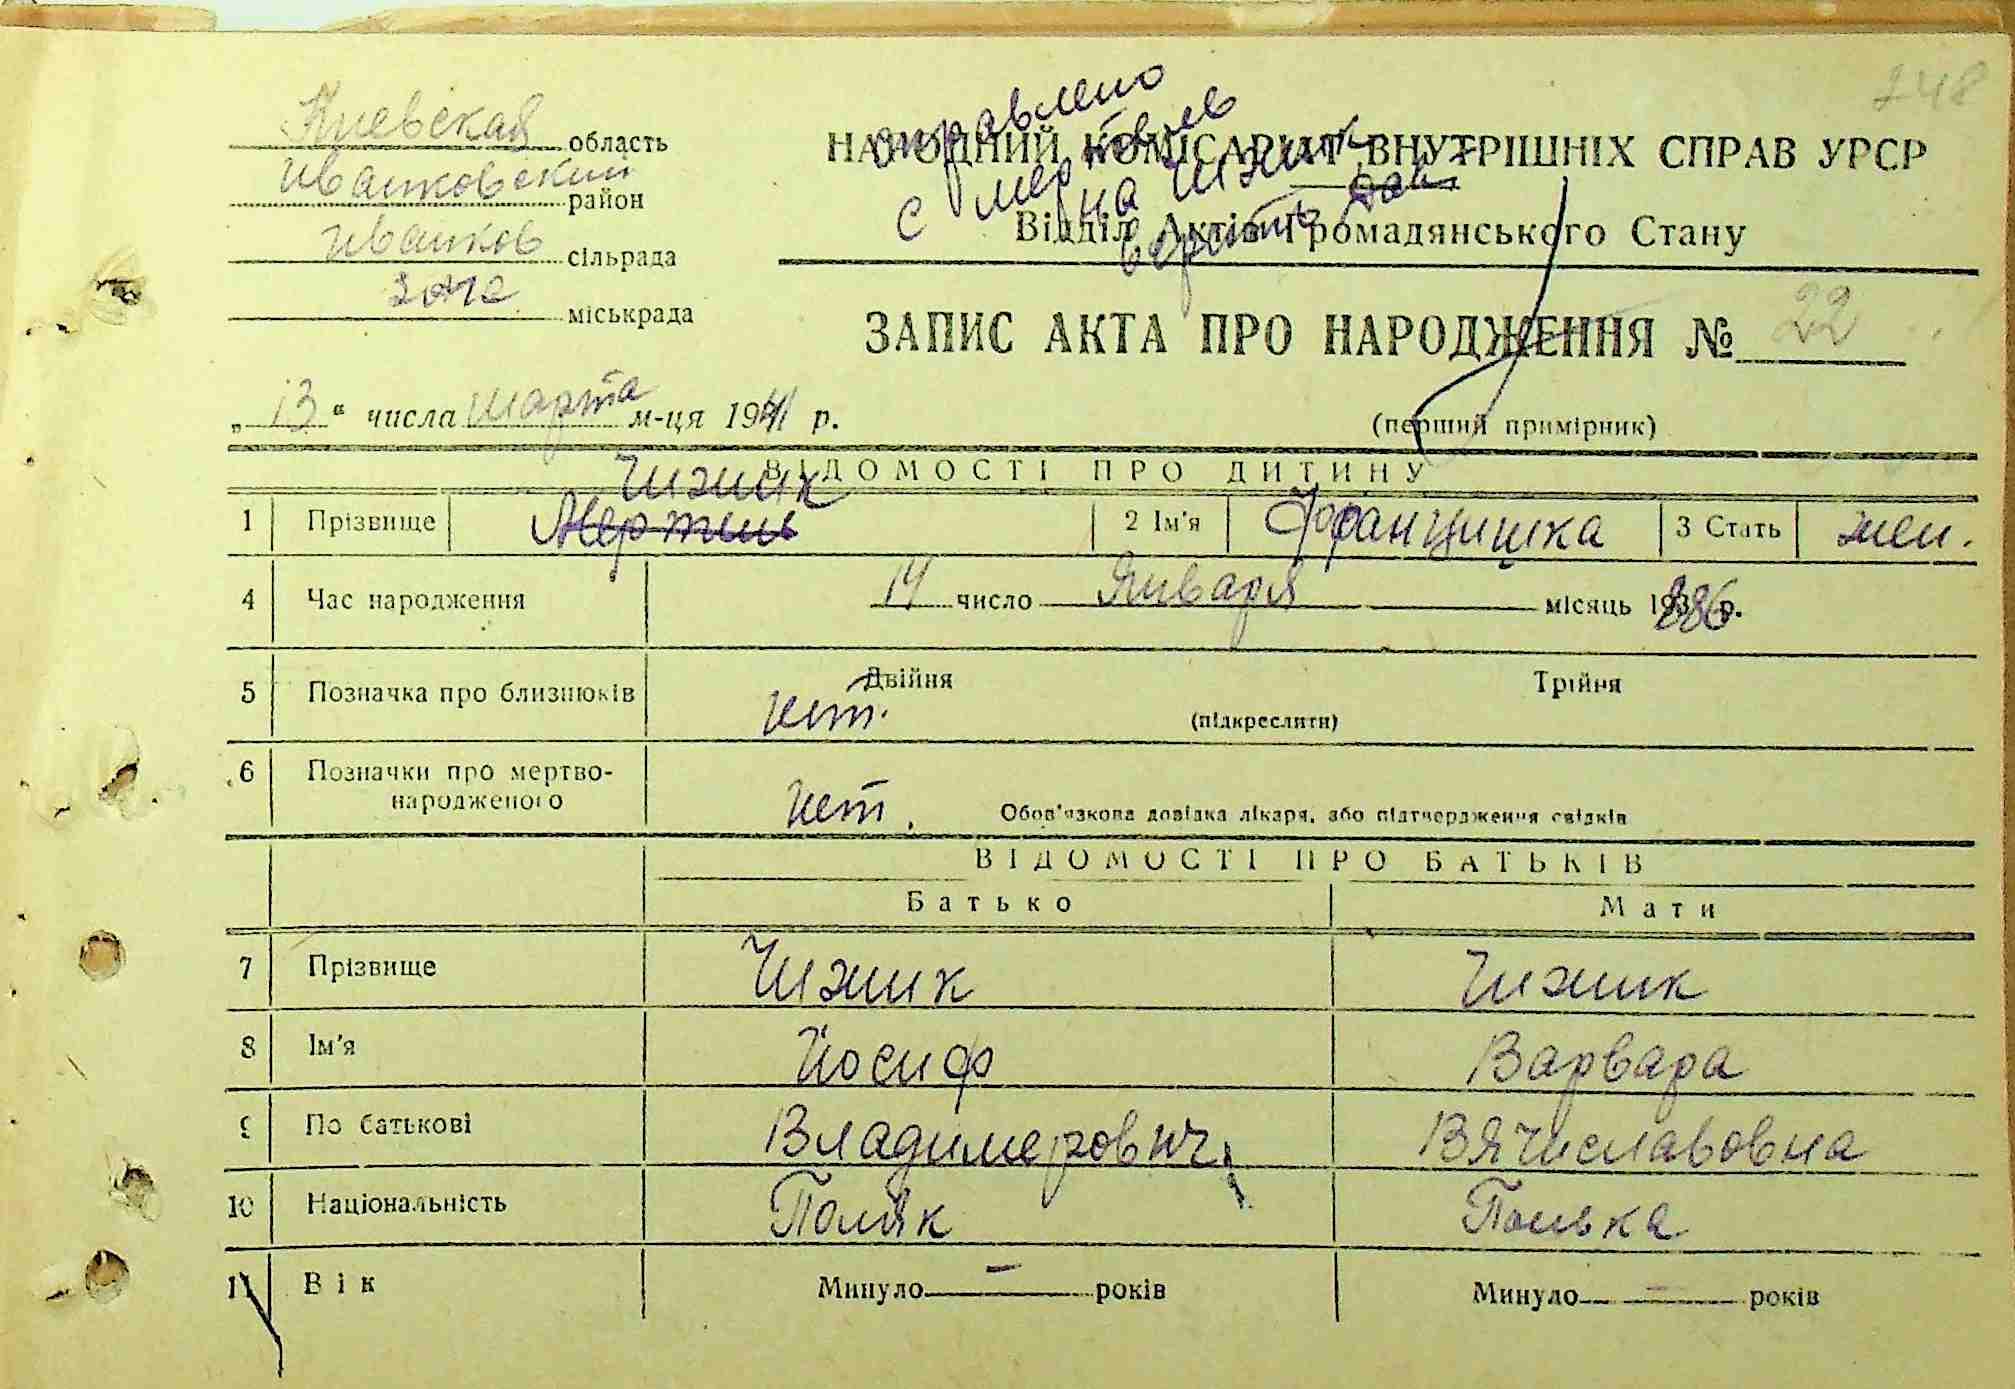 248
Киевская область
Иванковский район
Иванков сільрада
загс міськрада
НАРОДНИЙ КОМІСАРІАТ ВНУТРІШНІХ СПРАВ УРСР
Відділ Актів Громадянського Стану
исправлено
с
на Чижик
верить
ЗАПИС АКТА ПРО НАРОДЖЕННЯ № 22
„13“ числа марта м-ця 1941 р.
(перший примірник)
ВІДОМОСТІ ПРО ДИТИНУ
Чижик
1 Прізвище 2 Ім'я Францишка 3 Стать жен.
4 Час народження 14 число Января місяць 1886 р.
5 Позначка про близнюків Двійня Трійня
нет. (підкреслити)
6 Позначки про мертво-
народженого нет. Обов'язкова довідка лікаря, або підтвердження свідків
ВІДОМОСТІ ПРО БАТЬКІВ
Батько Мати
7 Прізвище Чижик Чижик
8 Ім'я Йосиф Варвара
9 По батькові Владимерович Вячиславовна
10 Національність Поляк Полька
11 Вік Минуло — років Минуло — років